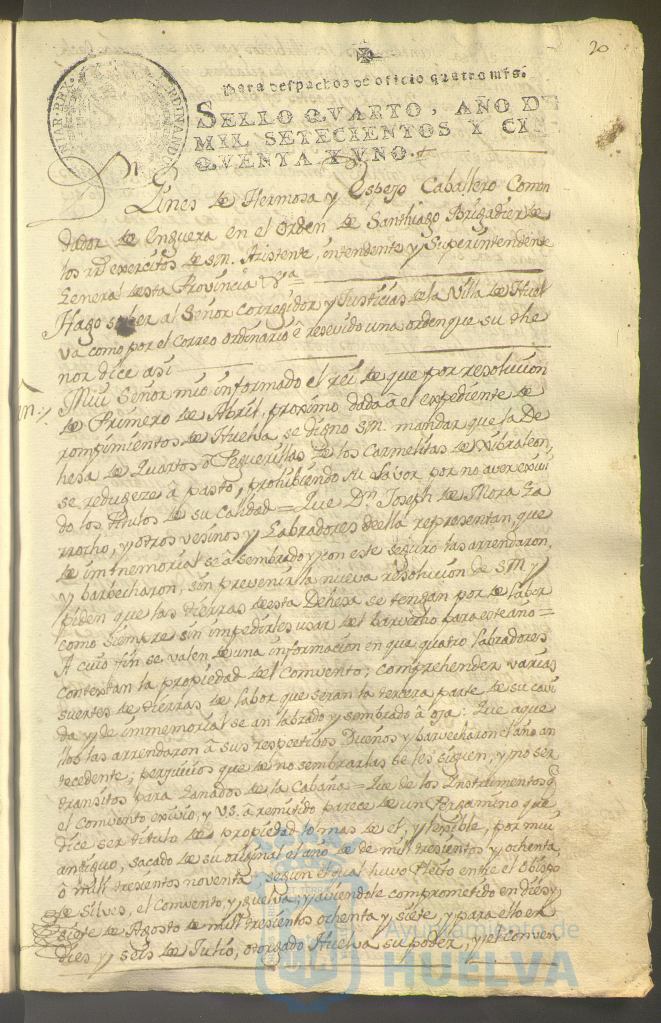 20
Para despachos de oficio quatro mrs.
SELLO QVARTO, AÑO DE
MIL SETECIENTOS Y CIN
QVENTA Y VNO.
Dn. Gines de Hermosa y Espejo Caballero Comen
dador de Enguera en el orden de Santhiago Brigadier de
los rs. exercitos de S.M. Asistente, intendente y Superintendente
General desta Provincia &a
Hago saber al Señor Corregidor y Justicias de la Villa de Huel
va como por el Correo ordinario è resevido una orden que su the
nor dice asi
Mui Señor mio informado el rei de que por resolucion
de Primero de Abril proximo dada â el expediente de
rompimientos de Huelva, se digno S.M. mandar que la De
hesa de Quartos ô Peguerillas de los Carmelitas de Xibraleon
se redugeze â pasto, prohibiendo su lavor por no aver exivi
do los titulos de su calidad = Que Dn. Joseph de Mora Ga
rrocho, y otros vesinos y Labradores de ella representan, que
de inmemorial se â sembrado y con este seguro las arrendaron,
y barbecharon, sin prevenir la nueva resolucion de S.M. y
piden que las tierras de esta Dehesa se tengan por de labor
como siempre sin impedirles usar del barvecho para este año =
A cuio fin se valen de una informacion en que quatro labradores
contextan la propiedad del Comvento; comprehender varias
suertes de tierras de labor que seran la tercera parte de su cavi
da y de immemorial se an labrado y sembrado â oja: Que aque
llos las arrendaron â sus respectibos Dueños y barvecharon el año an
tecedente; perjuicios que de no sembrarlas se les siguen, y no ser
transitos para Ganados de la Cabaña = Que de los Instrumentos q.
el Comvento exivio, y VS. â remitido parece de un Pergamino que
dice ser titulo de propiedad lo mas de el, y lexible, por mui
antiguo, sacado de su original el año de de mill tresientos y ochenta
ô mill tresientos noventa, segun el qual huvo Pleito entre el Obispo
de Silves, el Comvento y Huelva; y aviendole comprometido en dies y
siete de Agosto de mill tresientos ochenta y siete, y para ello en
dies y seis de Julio, otorgado Huelva su poder, y el Conven
Ayuntamiento de
HUELVA